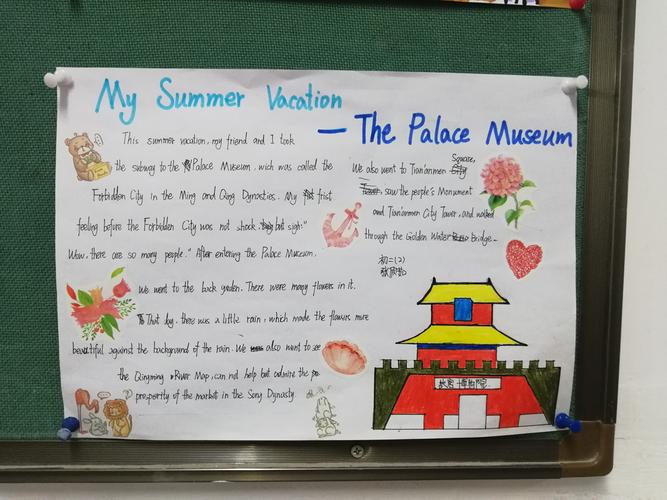 My Summer Vacation
— The Palace Museum
This summer vacation, my friend and I took
the subway to the Palace Museum, wich was called the
Forbidden City in the Ming and Qing Dynasties. My frist
feeling before the Forbidden City was not shock, but sigh:"
Wow, there are so many people." After entering the Palace Museum.
We went to the back garden. There were many flowers in it.
That day, there was a little rain, which made the flowers more
beautiful against the background of the rain. We also went to see
the Qingming River Map, can not help but admire the
prosperity of the market in the Song Dynasty.
We also went to Tian'anmen Square,
saw the people's Monument
and Tian'anmen City Tower, and walked
through the Golden Water Bridge.
初二(2)
故宫博物院